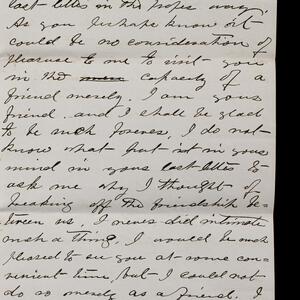 last letter in the proper way.
As you perhaps know it
could be no consideration of
pleasure to me to visit you
in the capacity of a
friend merely. I am your
friend and I shall be glad
to be such forever, I do not
know what put it in your
mind in your last letter to
ask me why I thought of
breaking off the friendship be-
tween us, I never did intimate
such a thing. I would be most
pleased to see you at some con-
venient time, but I could not
do so merely as a friend. I